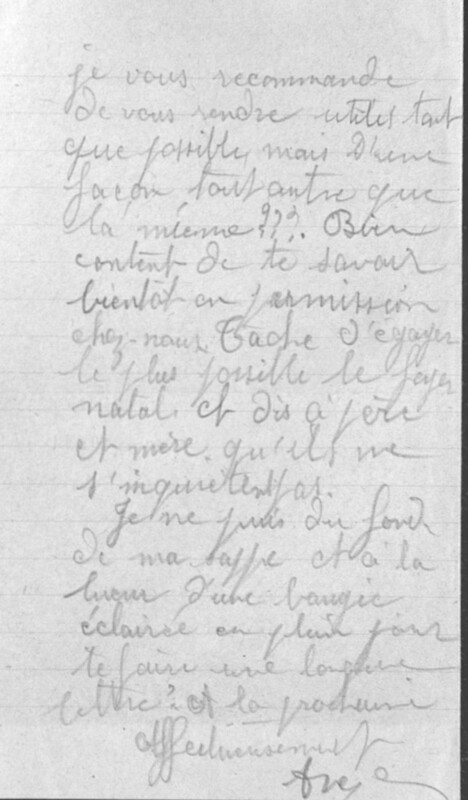 je vous recommande
de vous rendre utiles tant
que possible, mais d'une
façon tout autre que
la mienne ???. Bien
content de te savoir
bientôt en permission
chez-nous. Tache d'égayer
le plus possible le foyer
natal et dis à père
et mère qu'ils ne
s'inquiètent pas.
Je ne puis du fond
de ma sappe et à la
lueur d'une bougie
éclairée en plein jour
te faire une longue
lettre? A la prochaine
Affectueusement